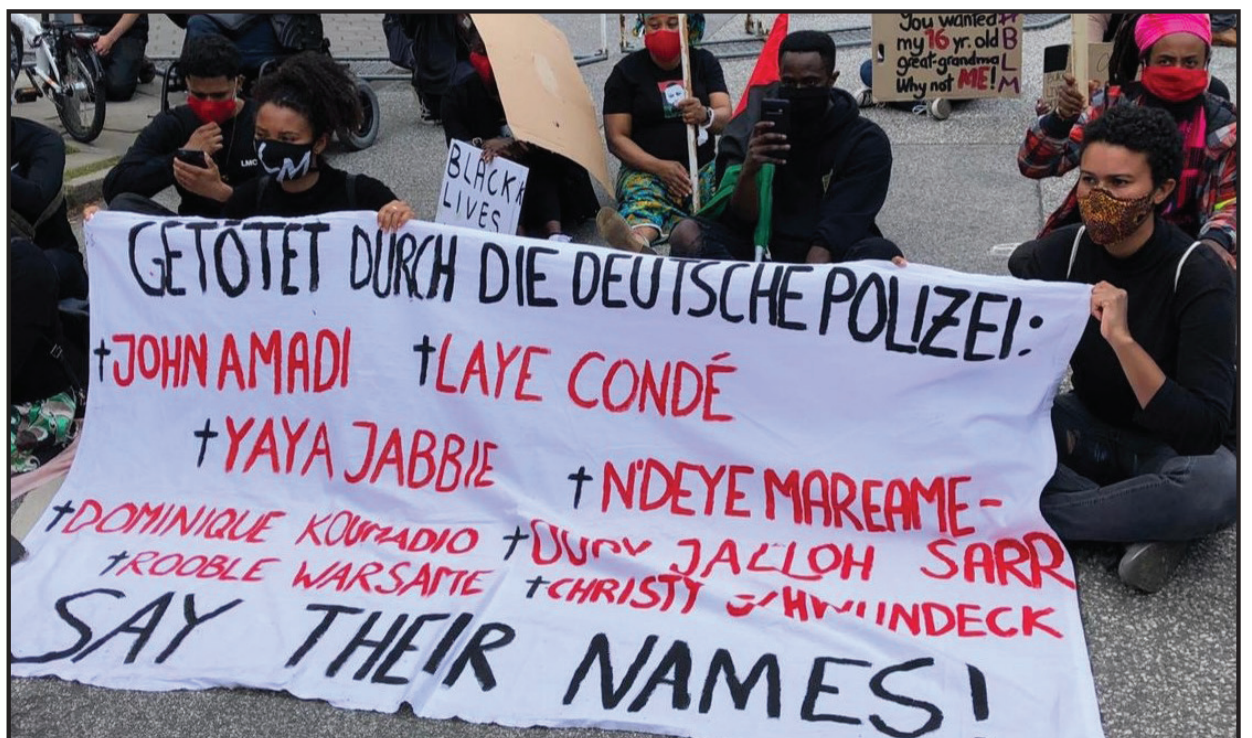 you wanted
my 16 yr. old
great-grandma
Why not ME!
BLM
LMC
LM
BLACK
LIVES
GETÖTET DURCH DIE DEUTSCHE POLIZEI:
†JOHN AMADI †LAYE CONDÉ
†YAYA JABBIE †N'DEYE MAREAME-
†DOMINIQUE KOUMADIO † JALLOH SARR
†ROOBLE WARSAME †CHRISTY SCHWUNDECK
SAY THEIR NAMES!